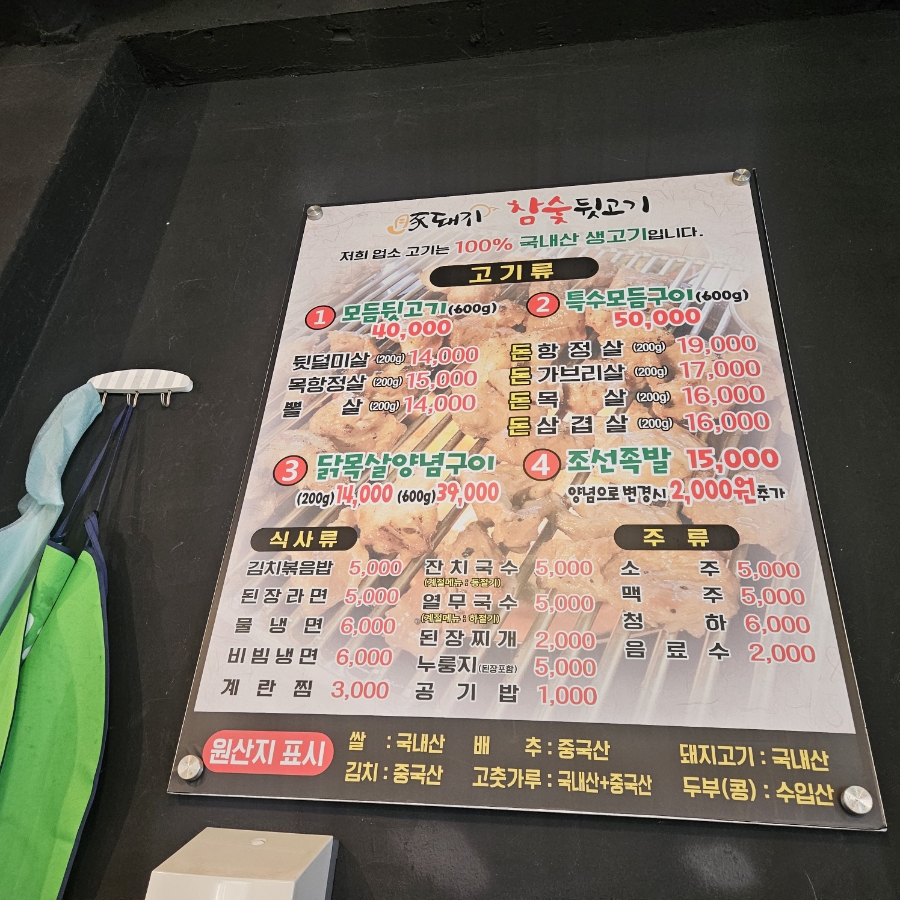 豚돼지 참숯뒷고기
저희 업소 고기는 100% 국내산 생고기입니다.
고기류
1 모듬뒷고기(600g)
40,000
뒷덜미살 (200g) 14,000
목항정살 (200g) 15,000
뽈 살 (200g) 14,000
2 특수모듬구이(600g)
50,000
돈항정살 (200g) 19,000
돈가브리살 (200g) 17,000
돈목 살 (200g) 16,000
돈삼겹살 (200g) 16,000
3 닭목살양념구이
(200g)14,000 (600g)39,000
4 조선족발 15,000
양념으로 변경시 2,000원추가
식사류
김치볶음밥 5,000
된장라면 5,000
물냉면 6,000
비빔냉면 6,000
계란찜 3,000
잔치국수 5,000
(계절메뉴 : 동절기)
열무국수 5,000
(계절메뉴 : 하절기)
된장찌개 2,000
누룽지(된장포함) 5,000
공기밥 1,000
주류
소 주 5,000
맥 주 5,000
청 하 6,000
음료수 2,000
원산지 표시
쌀 : 국내산 배 추 : 중국산 돼지고기 : 국내산
김치 : 중국산 고춧가루 : 국내산+중국산 두부(콩) : 수입산